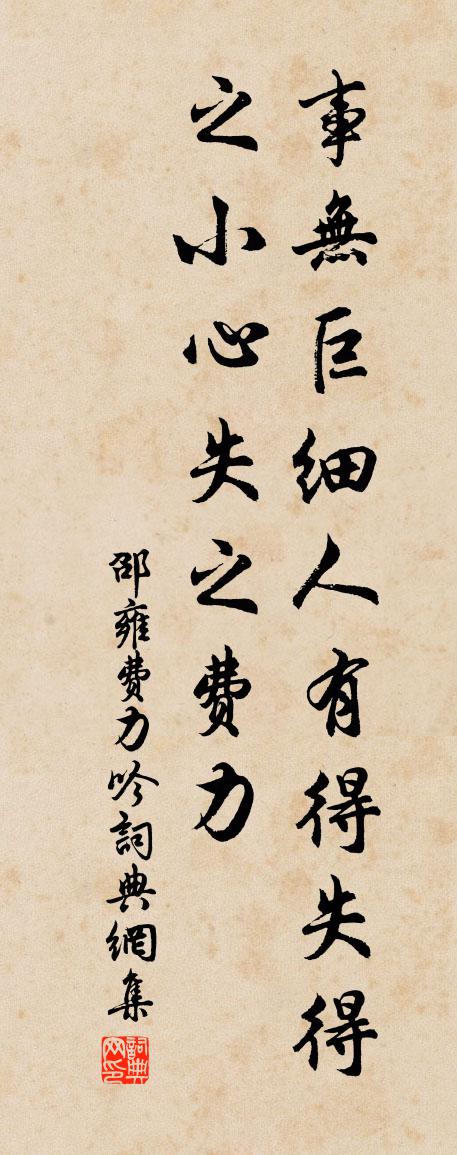 事無巨細人有得失得
之小心失之費力
邵雍費力吟詞典網集
詞典
网印